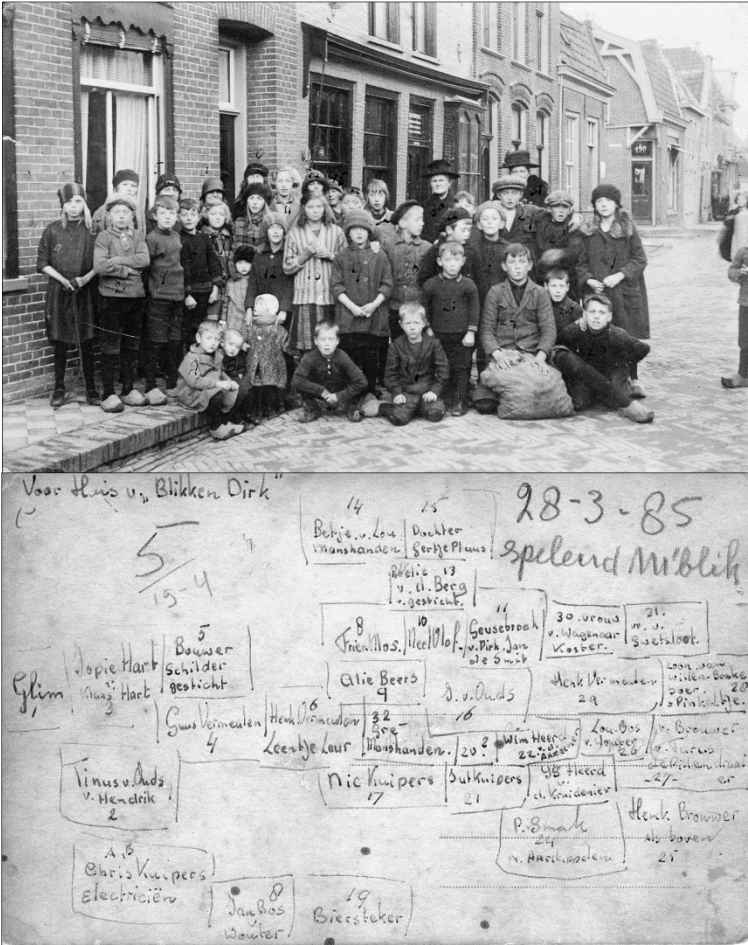 Voor Huis v. „Blikken Dirk"
5
19-4
14
Betje v. Lou
Manshanden
15
Dochter
Gertje Plaus
28-3-85
spelend M'blik
13
v. d. Berg
v. gesticht.
8
Trien Mos.
10
Neel Olof.
11
Geusebroek
v. Dirk, Jan
de Smit
30. vrouw
v. Wagenaar
Koster.
31.
vr. v.
Swetsloot.
Glim
1
Jopie Hart
v.
Klaas Hart
3
5
Bouwer
Schilder
gesticht
Alie Beers
9
J. v. Ouds
16
Henk Vermeulen
29
zoon van
boer
Guus Vermeulen
4
Henk Vermeulen
6
Leentje Leur
32
Bre-
Manshanden.
20?
Wim Heerd
22
Lou Bos
v. Jouber
28
v. Brouwer
v. Jurus
27
er
Tinus v. Ouds
v. Hendrik
2
Nic Kuipers
17
Jut Kuipers
21
Heerd
v.
d. Kruidenier
P. Smak
24
m. Aardappelen
Henk Brouwer
als boven
25
A, B
Chris Kuipers
Electriciën
8
Jan Bos
v.
Wouter
19
Biersteker